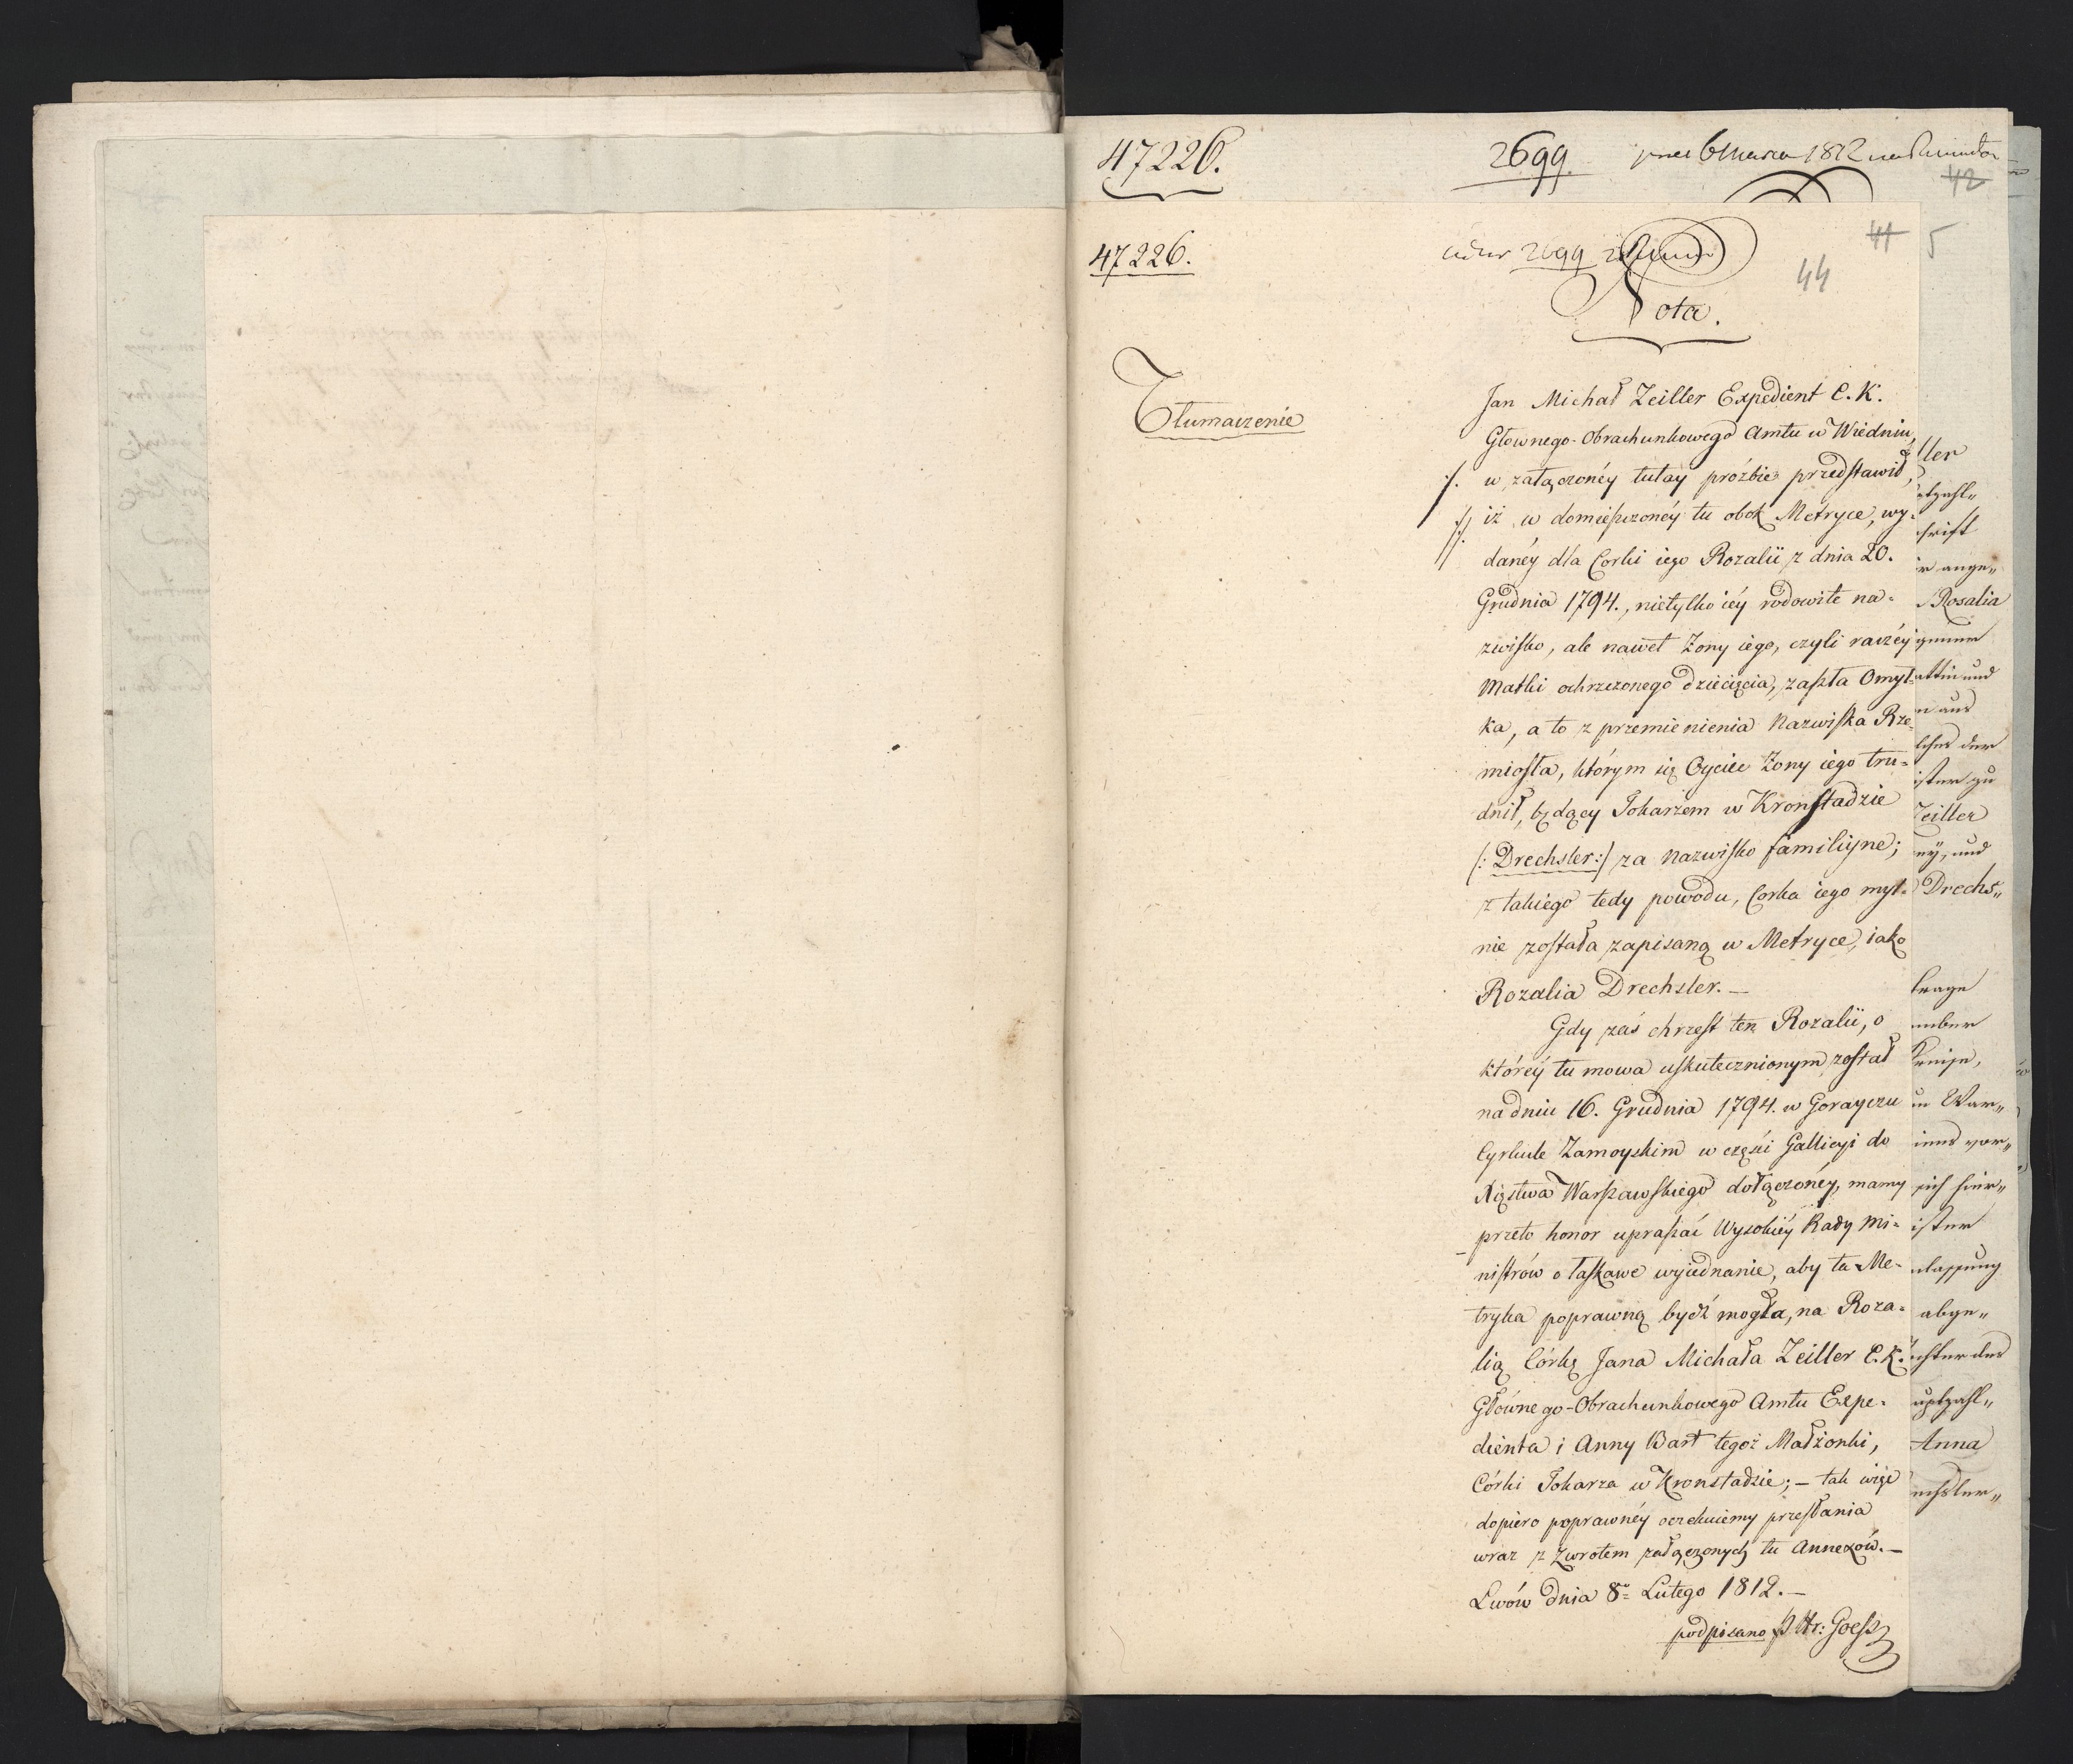 47226.
2699.
1812
42
47226.
2699
41
5
44
Nota.
Tłumaczenie
Jan Michał Zeiller Expedient C. K.
Głownego-Obrachunkowego Amtu w Wiedniu,
./. w załączonéy tutay proźbie przedstawił,
.//. iż w domieszczonéy tu obok Metryce, wy-
danéy dla Corki iego Rozalii z dnia 20.
Grudnia 1794., nietylko iéy rodowite na-
zwisko, ale nawet Żony iego, czyli raczéy
Matki ochrzczonego dziecięcia, zaszła Omył-
ka, a to z przemienienia Nazwiska Rze-
miosła, którym się Oyciec Żony iego tru-
dnił, będący Tokarzem w Kronstadzie
/: Drechsler :/ za Nazwisko familiyne;
z takiego tedy powodu, Corka iego myl-
nie została zapisaną w Metryce, iako
Rozalia Drechsler. —
Gdy zaś chrzest ten Rozalii, o
któréy tu mowa uskutecznionym został
na dniu 16. Grudnia 1794. w Gorayczu
Cyrkule Zamoyskim w części Gallicyi do
Xięstwa Warszawskiego dołączonéy, mamy
przeto honor upraszać Wysokiéy Rady Mi-
nistrów o łaskawe wyiednanie, aby ta Me-
tryka poprawną bydź mogła, na Roza-
lią Córkę Jana Michała Zeiller C. K.
Głównego-Obrachunkowego Amtu Expe-
dienta i Anny Bart tegoż Małżonki,
Córki Tokarza w Kronstadzie; — tak więc
dopiero poprawnéy oczekuiemy przesłania
wraz z Zwrotem załączonych tu Annexów. —
Lwów dnia 8. Lutego 1812. —
podpisano P. Hr: Goess
ller
Rosalia
Zeiller
Drechs„
War„
Anna